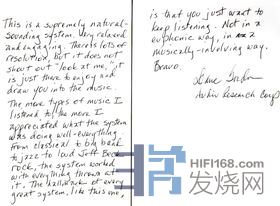 This is a supremely natural-
sounding system. Very relaxed
and engaging. There's lots of
resolution, but it does not
shout out "look at me," it
is just there to enjoy and
draw you into the music.
The more types of music I
listened to, the more I
appreciated what the system
was doing well - everything.
From classical to big band
to jazz to loud Jeff Beck
rock, the system worked
with everything thrown at
it. The hallmark of every
great system, like this one,
is that you just want to
keep listening. Not in a
euphonic way, in a
musically-involving way.
Bravo.
Audio Research Corp
HIFI168.com
发烧网